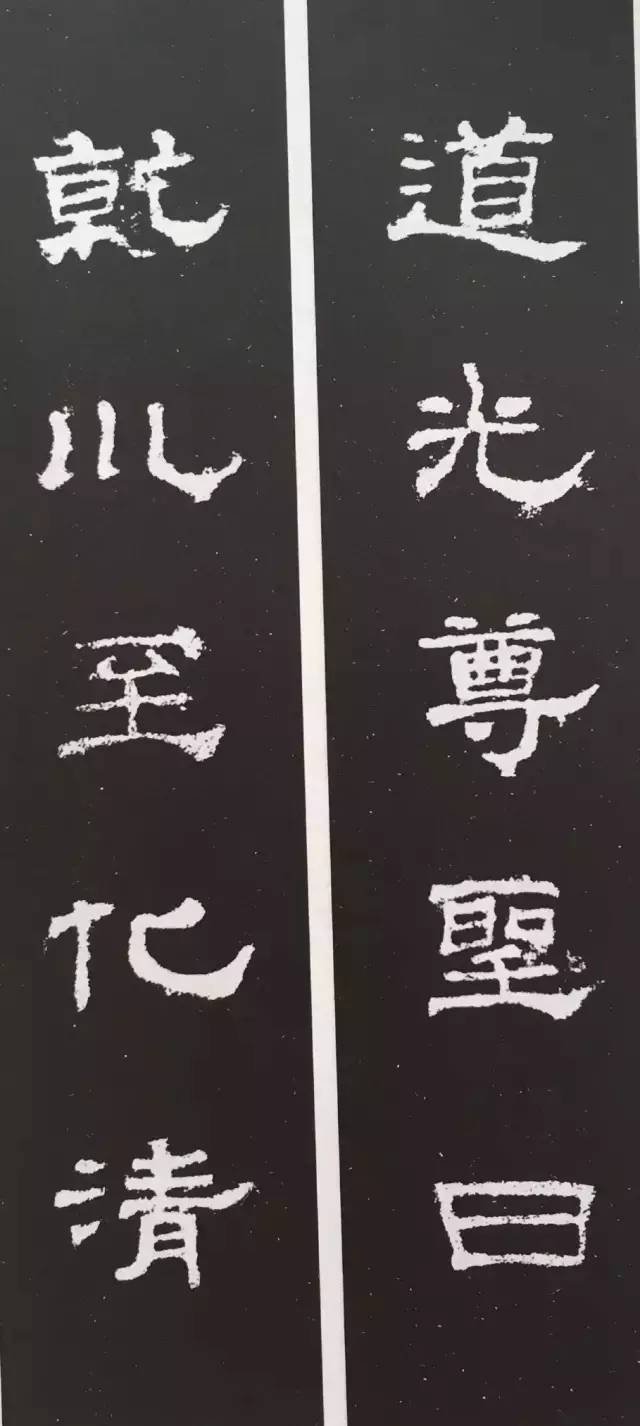 道光尊聖日
乾川至化清